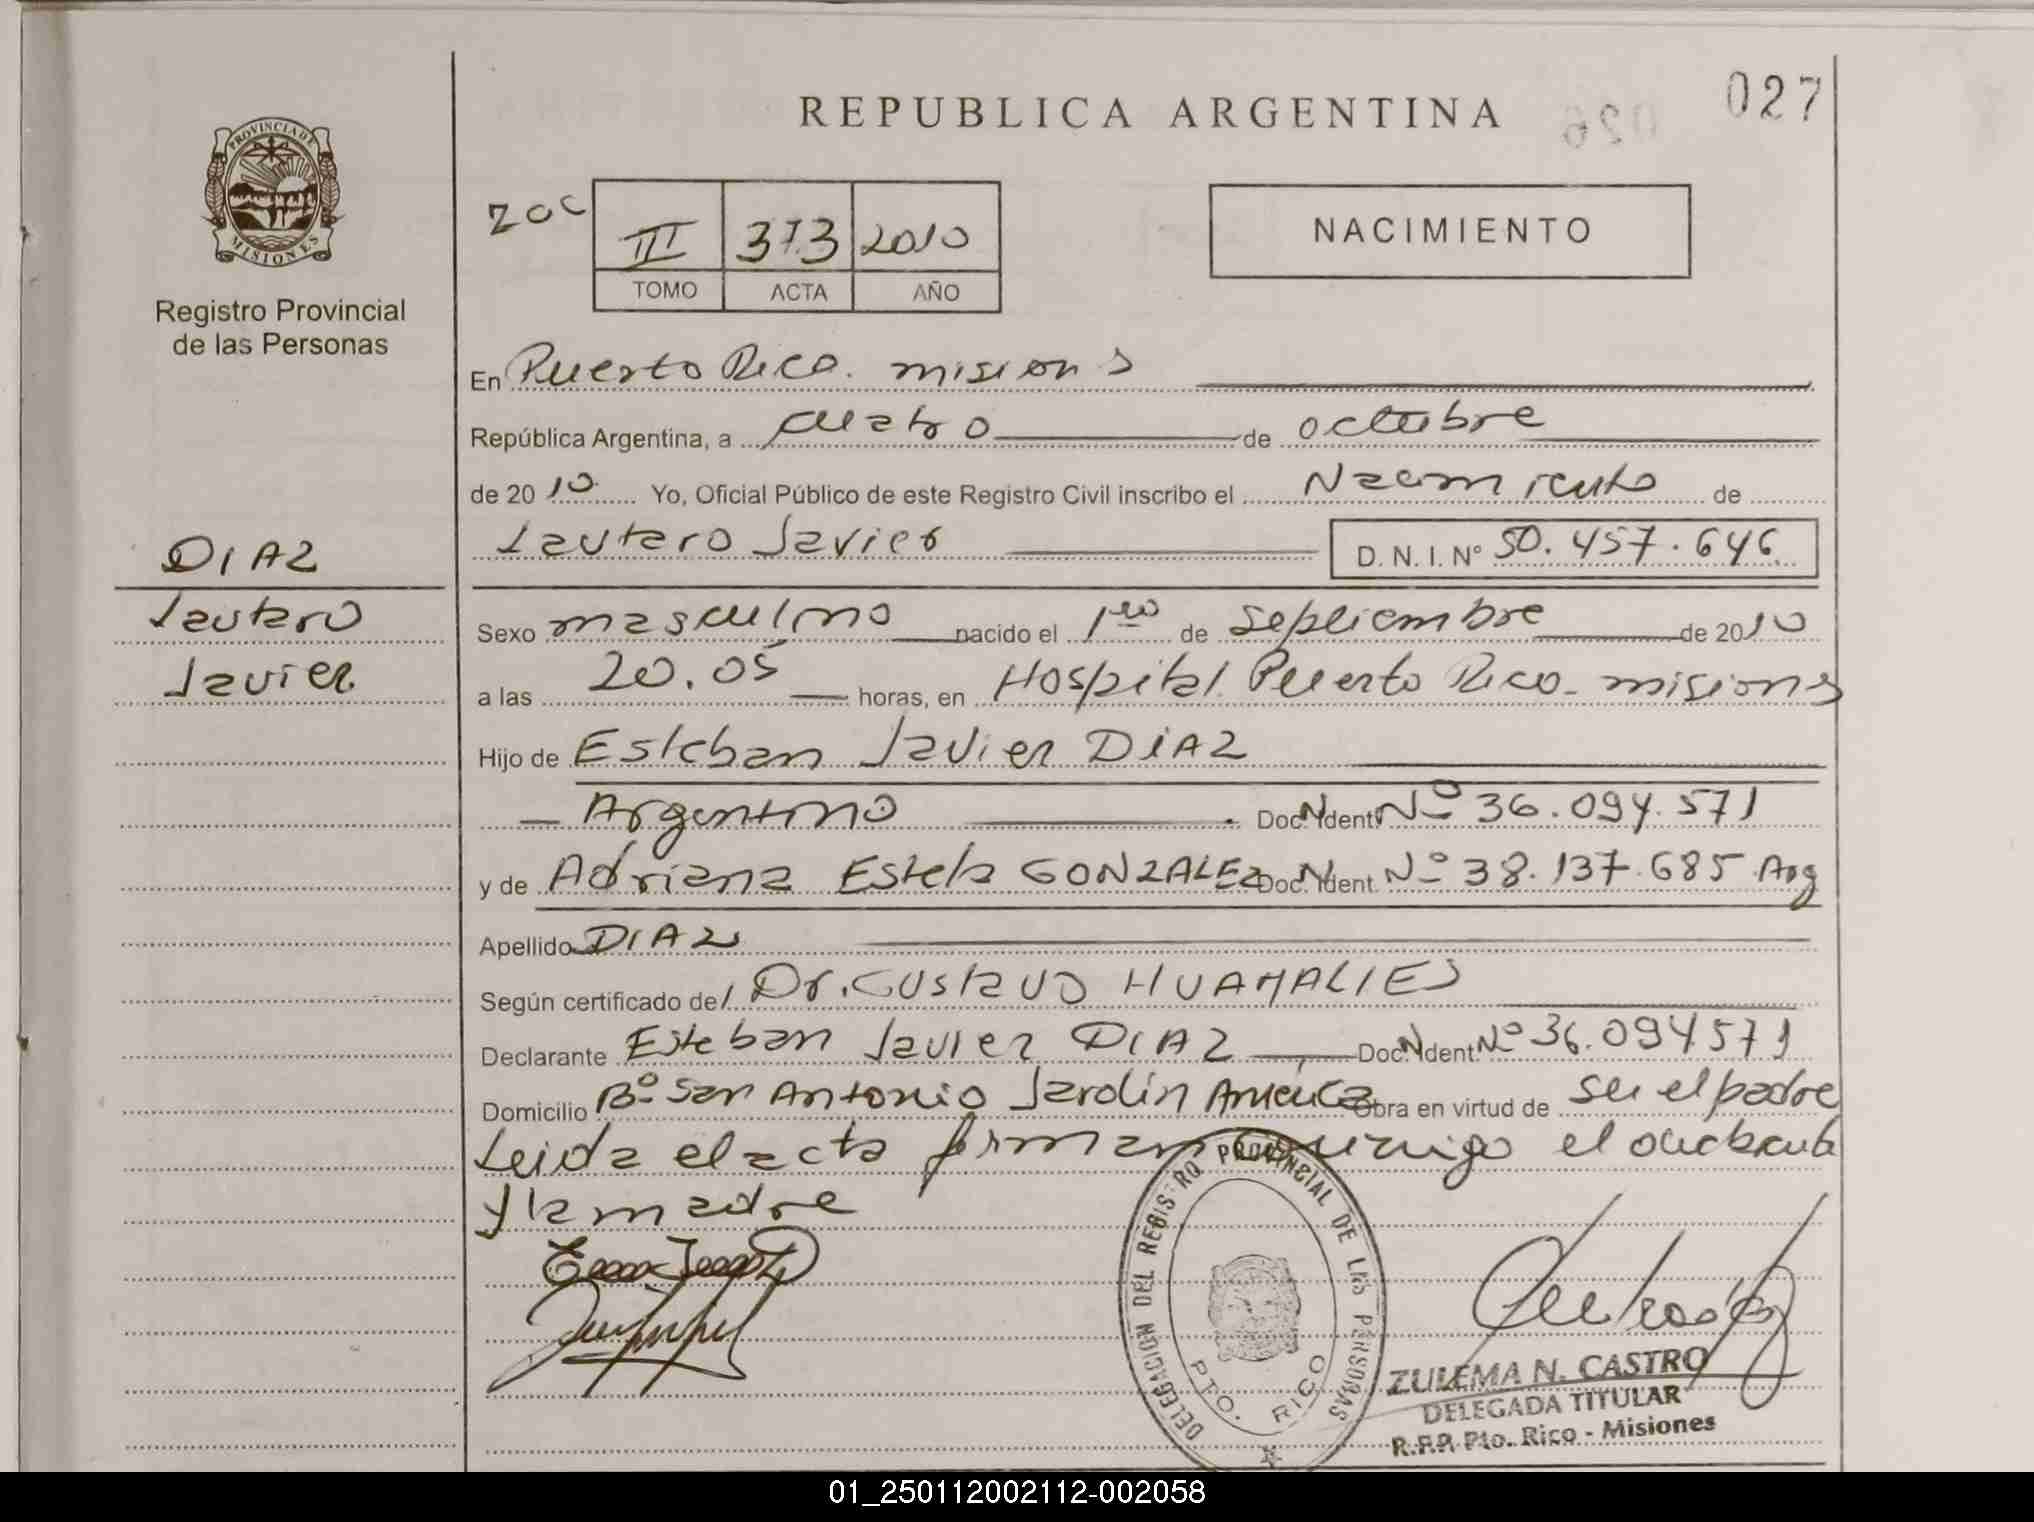 027
REPUBLICA ARGENTINA
026
PROVINCIA DE MISIONES
Registro Provincial
de las Personas
III 373 2010
TOMO ACTA AÑO
NACIMIENTO
En Puerto Rico. misiones
República Argentina, a cuatro de octubre
de 2010 Yo, Oficial Público de este Registro Civil inscribo el Nacimiento de
Lautaro Javier D. N. I. Nº 50.457.646
DIAZ
Lautaro
Javier
Sexo masculino nacido el 1ro de septiembre de 2010
a las 20.05 horas, en Hospital Puerto Rico - misiones
Hijo de Esteban Javier DIAZ
Argentino Doc. Ident. Nº 36.094.571
y de Adriana Estela GONZALEZ Doc. Ident. Nº 38.137.685 Arg
Apellido DIAZ
Según certificado del Dr. Gustavo HUAMALIES
Declarante Esteban Javier DIAZ Doc. Ident. Nº 36.094571
Domicilio Bº San Antonio Jardín America Obra en virtud de ser el padre
Leida el acta firman conmigo el declarante
y la madre
DELEGACION DEL REGISTRO PROVINCIAL DE LAS PERSONAS
PTO. RICO
ZULEMA N. CASTRO
DELEGADA TITULAR
R.P.P. Pto. Rico - Misiones
01_250112002112-002058